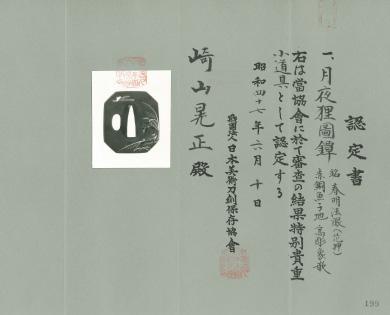 認定書
一、月夜狸圖鐔
銘 春明法眼(花押)
赤銅魚子地高彫象嵌
右は當協會に於て審査の結果特別貴重
小道具として認定する
昭和四十七年六月十日
財團法人日本美術刀剣保存協會
崎山晃正殿
199